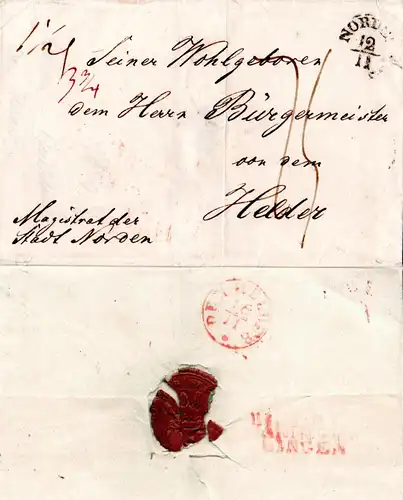 1 1/2
NORDEN
12
11
Seiner Wohlgeboren
3 3/4
dem Herrn Bürgermeister
von dem
Helder
Magistrat der
Stadt Norden